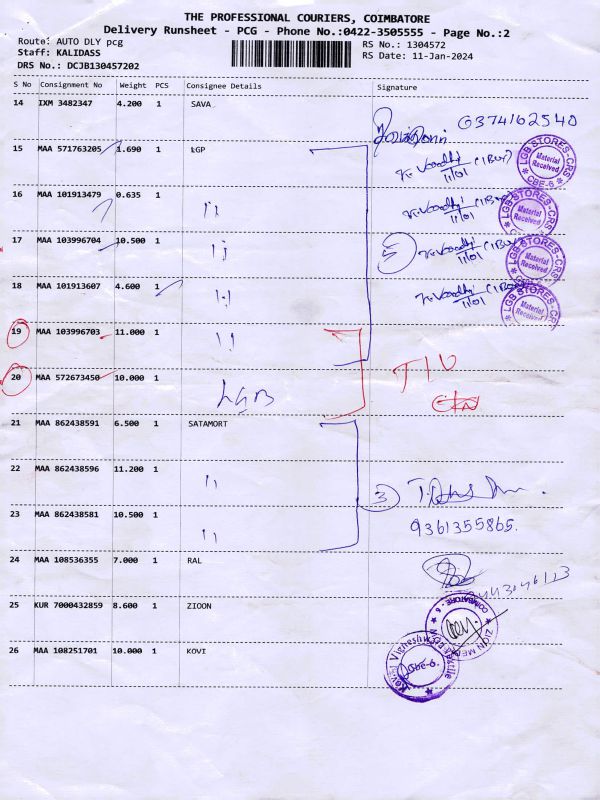 THE PROFESSIONAL COURIERS, COIMBATORE
Delivery Runsheet - PCG - Phone No.:0422-3505555 - Page No.:2
Route: AUTO DLY pcg
Staff: KALIDASS
DRS No.: DCJB130457202
RS No.: 1304572
RS Date: 11-Jan-2024
S No Consignment No Weight PCS Consignee Details Signature
14 IXM 3482347 4.200 1 SAVA
6374162540
15 MAA 571763205 1.690 1 LGP
11/01
LGB STORES-CRS Material Received CBE-6
16 MAA 101913479 0.635 1 ''
11/01
LGB STORES-CRS Material Received
17 MAA 103996704 10.500 1 ''
5
11/01
LGB STORES-CRS Material Received
18 MAA 101913607 4.600 1 ''
11/01
LGB STORES-CRS Material Received
19 MAA 103996703 11.000 1 ''
20 MAA 572673450 10.000 1 LGB
21 MAA 862438591 6.500 1 SATAMORT
22 MAA 862438596 11.200 1 ''
3
23 MAA 862438581 10.500 1 ''
9361355865.
24 MAA 108536355 7.000 1 RAL
25 KUR 7000432859 8.600 1 ZIOON
COIMBATORE - 6
26 MAA 108251701 10.000 1 KOVI